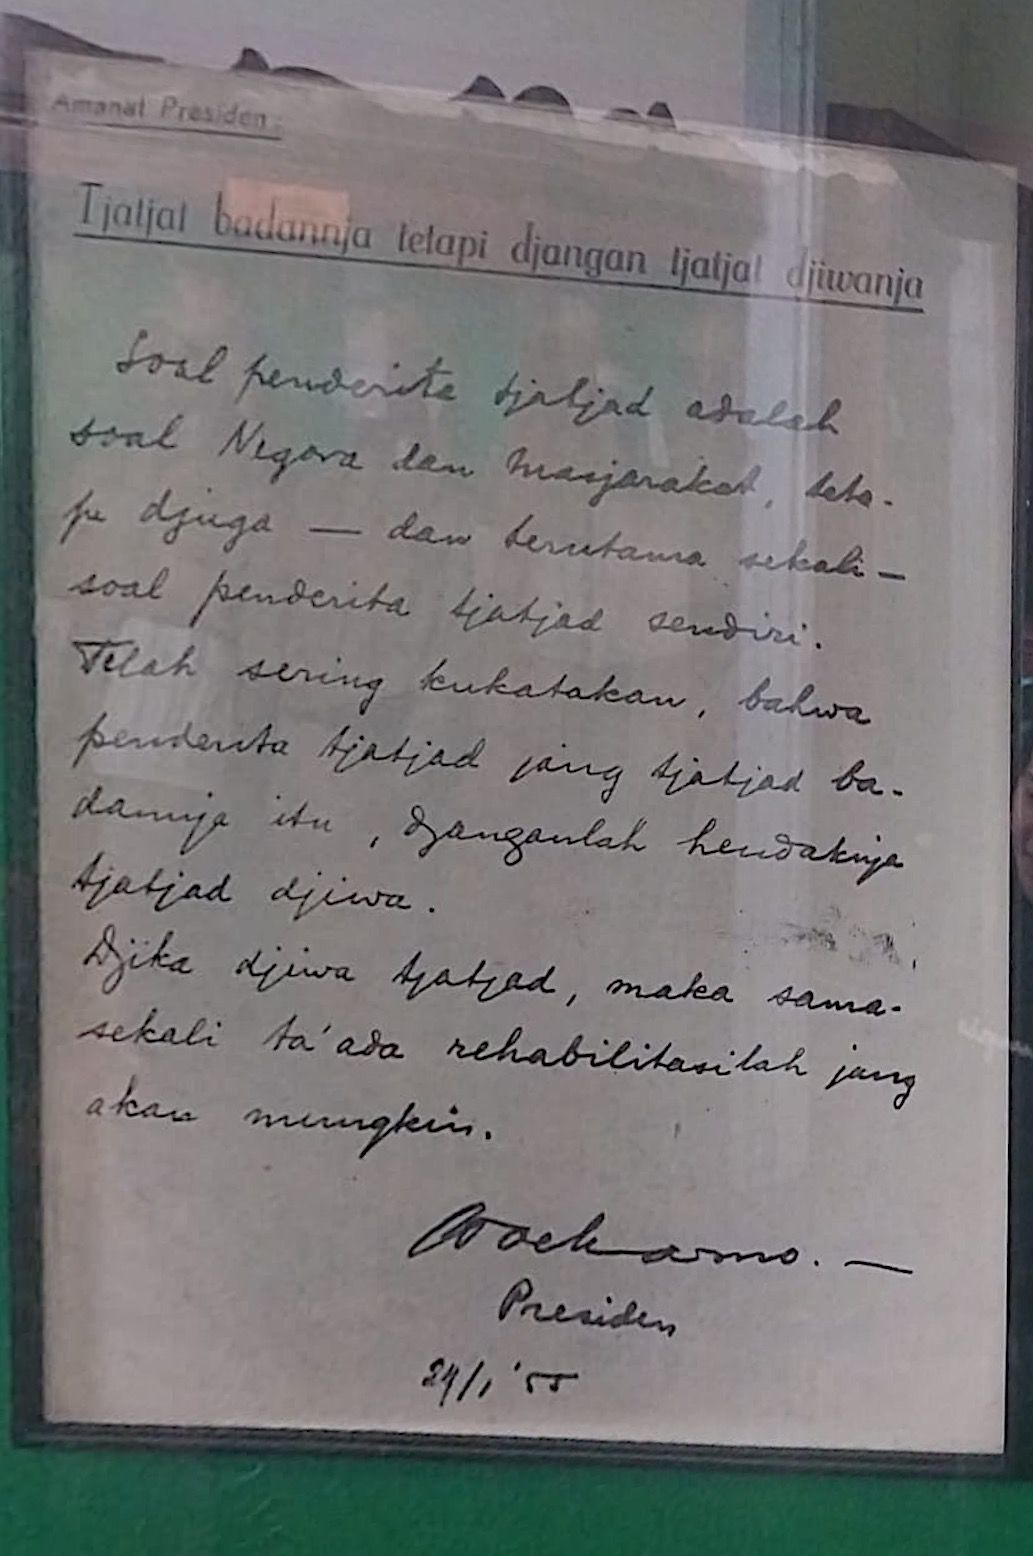 Amanat Presiden :
Tjatjat badannja tetapi djangan tjatjat djiwanja
Soal penderita tjatjad adalah
soal Negara dan Masjarakat, teta-
pi djuga — dan terutama sekali —
soal penderita tjatjad sendiri.
Telah sering kukatakan, bahwa
penderita tjatjad jang tjatjad ba-
dannja itu, djanganlah hendaknja
tjatjad djiwa.
Djika djiwa tjatjad, maka sama-
sekali ta' ada rehabilitasilah jang
akan mungkin.
Soekarno. —
Presiden
24/1 '55